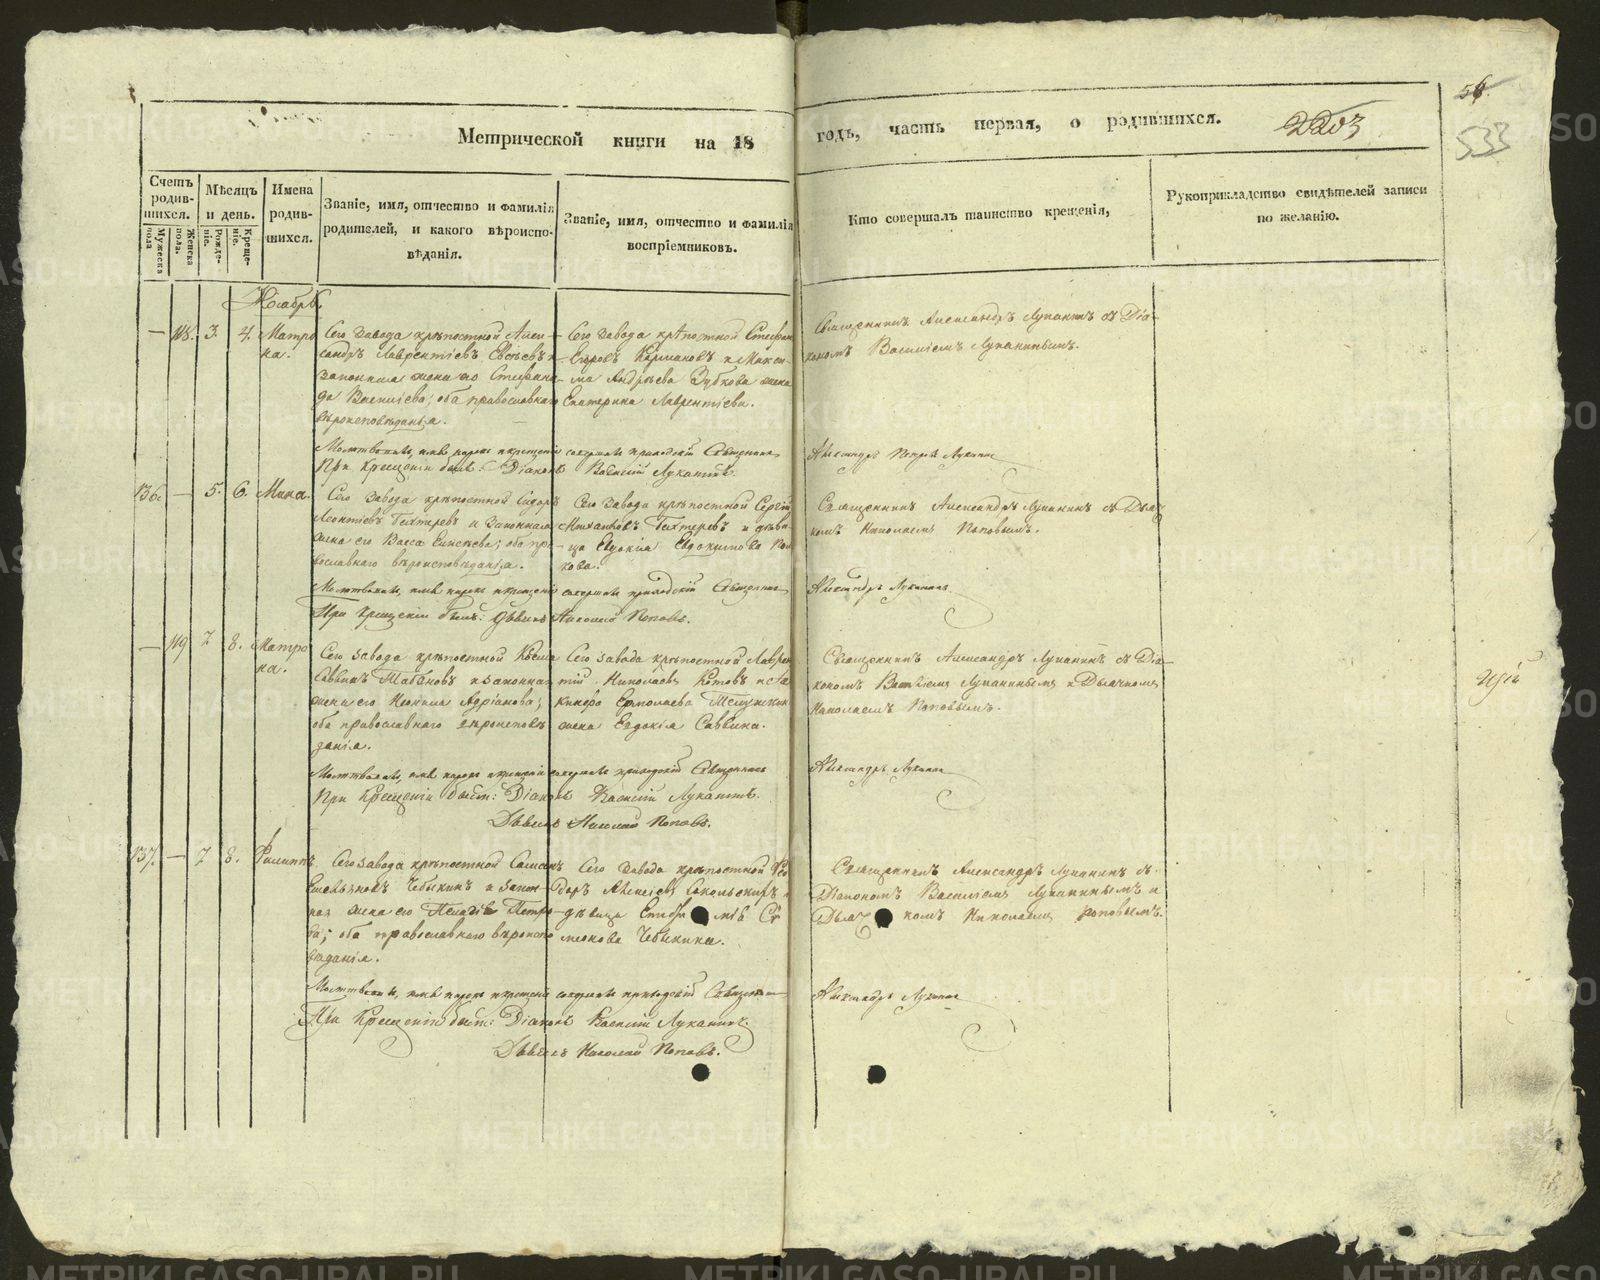 Метрической книги на 18 годъ, часть первая, о родившихся.
2203
54.
533
Счетъ родив-шихся.
Мужеска пола
Женска пола.
Мѣсяцъ и день.
Рожде-ніе.
Креще-ніе.
Имена родив-шихся.
Званіе, имя, отчество и фамилія
родителей, и какого вѣроиспо-
вѣданія.
Званіе, имя, отчество и фамилія
воспріемниковъ.
Кто совершалъ таинство крещенія,
Рукоприкладство свидѣтелей записи
по желанію.
Ноабрь.
— 118. 3. 4. Матро
на.
Сего завода крѣпостной Алек-
сандръ Лаврентіевъ
законная жена его Степани-
да Василіева; оба православнаго
вѣроисповѣданія.
Сего завода крѣпостной Стефанъ
Егоровъ и Макси-
ма Андрѣева Зубкова жена
Екатерина Лаврентіева.
Священникъ Александръ Луканинъ съ Діа-
кономъ Василіемъ Луканинымъ.
Молитвовалъ, имя нарекъ и крещеніе совершилъ приходскій Священникъ
Александръ Петровъ Луканинъ
При Крещеніи былъ: Діаконъ Василій Луканинъ.
136. — 5. 6. Мина.
Сего завода крѣпостной Сидоръ
Леонтіевъ Техтеревъ и законная
жена его Васса Елисѣева; оба пра-
вославнаго вѣроисповѣданія.
Сего завода крѣпостной Сергій
Техтеревъ и дѣви-
ца Евдокія Евдокимова
Священникъ Александръ Луканинъ съ Дьяч-
комъ Николаемъ Поповымъ.
Молитвовалъ, имя нарекъ и крещеніе совершилъ приходскій Священникъ
Александръ Луканинъ
При Крещеніи былъ: Дьячекъ Николай Поповъ.
— 119 7 8. Матро
на.
Сего завода крѣпостной Косма
Саввинъ Табановъ и законная
жена его Неонила Адріанова;
оба православнаго вѣроисповѣ
данія.
Сего завода крѣпостной Лаврен
тій Николаевъ Котовъ и
Ермолаева
жена Евдокія Саввина.
Священникъ Александръ Луканинъ съ Діа-
кономъ Василіемъ Луканинымъ и Дьячкомъ
Николаемъ Поповымъ.
Молитвовалъ, имя нарекъ и крещеніе совершилъ приходскій Священникъ
Александръ Луканинъ
При Крещеніи были: Діаконъ Василій Луканинъ.
Дьячекъ Николай Поповъ.
137. — 7 8. Филиппъ
Сего завода крѣпостной Самсонъ
Емельяновъ Чебыкинъ и закон-
ная жена его Пелагія Петро
ва; оба православнаго вѣроиспо
вѣданія.
Сего завода крѣпостной Ѳео
доръ Алексіевъ Сокольскихъ и
дѣвица
меонова Чебыкина.
Священникъ Александръ Луканинъ съ
Діакономъ Василіемъ Луканинымъ и
Дьячкомъ Николаемъ Поповымъ.
Молитвовалъ, имя нарекъ и крещеніе совершилъ приходскій Священникъ
Александръ Луканинъ
При Крещеніи были: Діаконъ Василій Луканинъ.
Дьячекъ Николай Поповъ.
METRIKI.GASO-URAL.RU